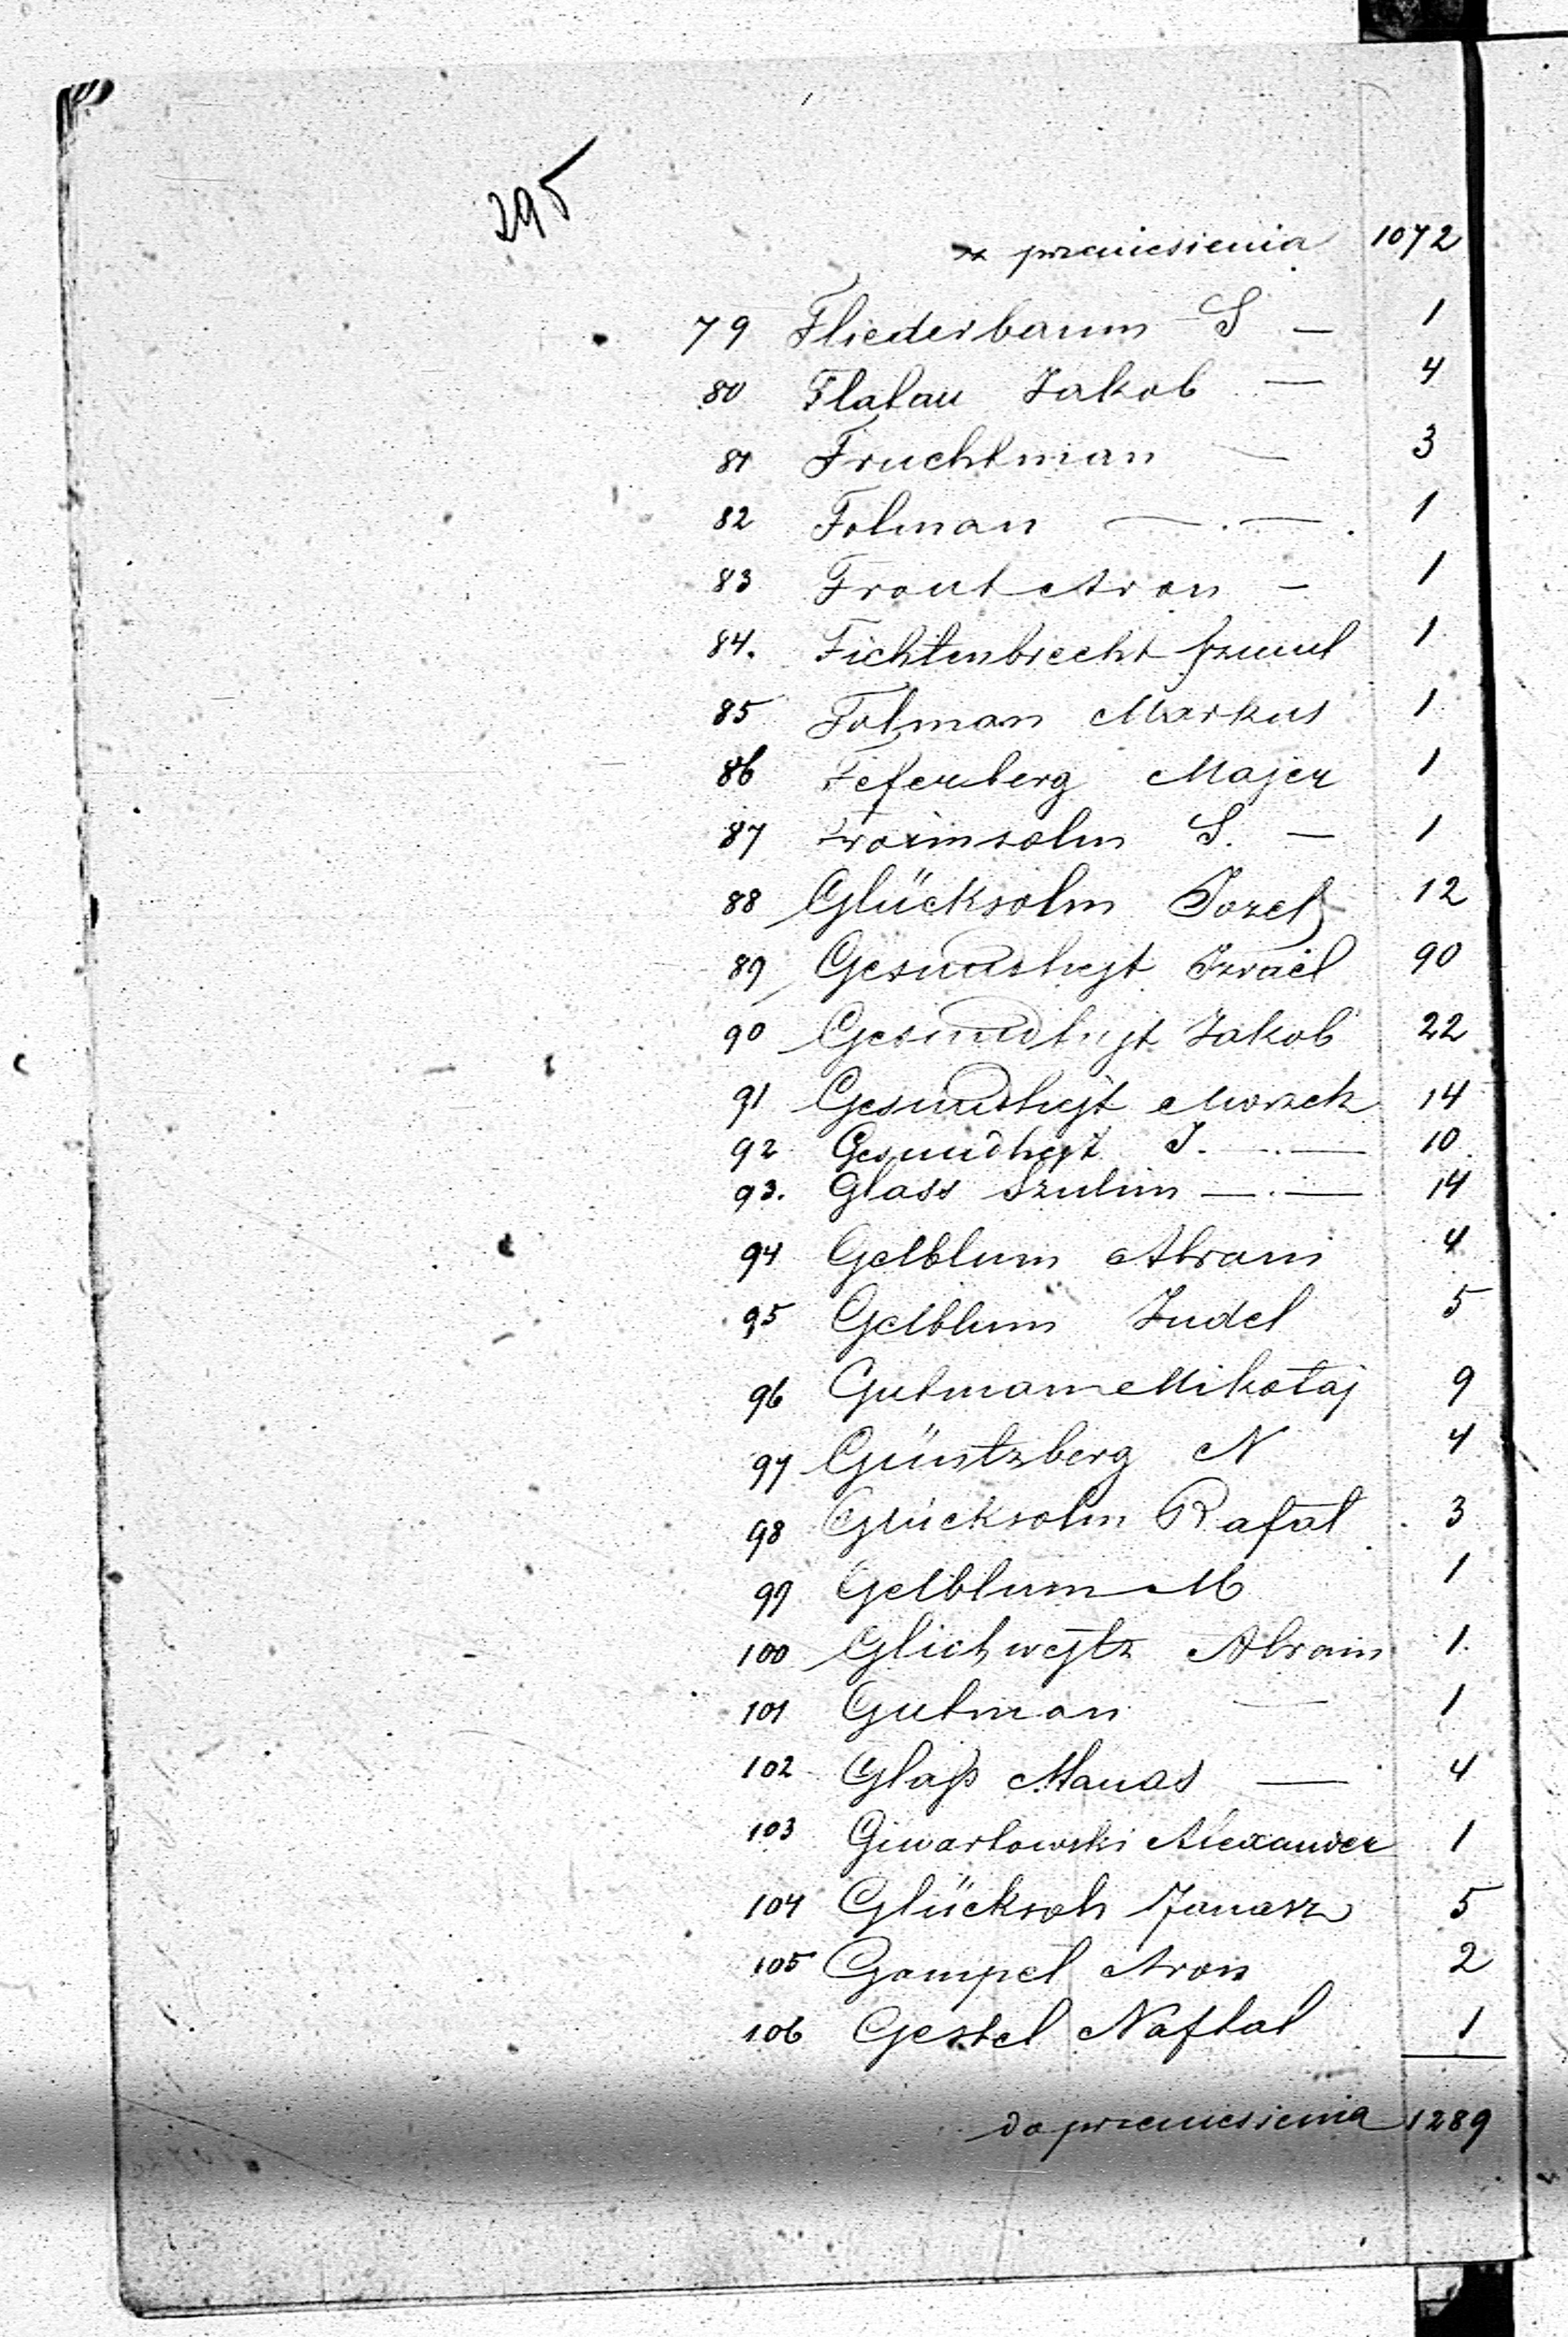 295
z przeniesienia 1072
79 Fliederbaum S — 1
80 Flatau Jakob — 4
81 Fruchtman — 3
82 Folman — . — . 1
83 Fraut Aron — 1
84. Fichtenbrecht Szmul 1
85 Folman Markus 1
86 Feferberg Majer 1
87 Froimsohn S. — 1
88 Glücksohn Jozef 12
89 Gesundhejt Izrael 90
90 Gesundhejt Jakob 22
91 Gesundhejt Morzek 14
92 Gesundhejt J. — . — 10
93. Glass Szulim — . — 14
94 Gelblum Abram 4
95 Gelblum Judel 5
96 Gutman Mikołaj 9
97 Güntzberg N 4
98 Glücksohn Rafał 3
99 Gelblum M 1
100 Glichwejtz Abram 1
101 Gutman — 1
102 Glaß Manas — 4
103 Giwartowski Alexander 1
104 Glücksoh Janasz 5
105 Gampel Aron 2
106 Gestel Naftal 1
do przeniesienia 1289